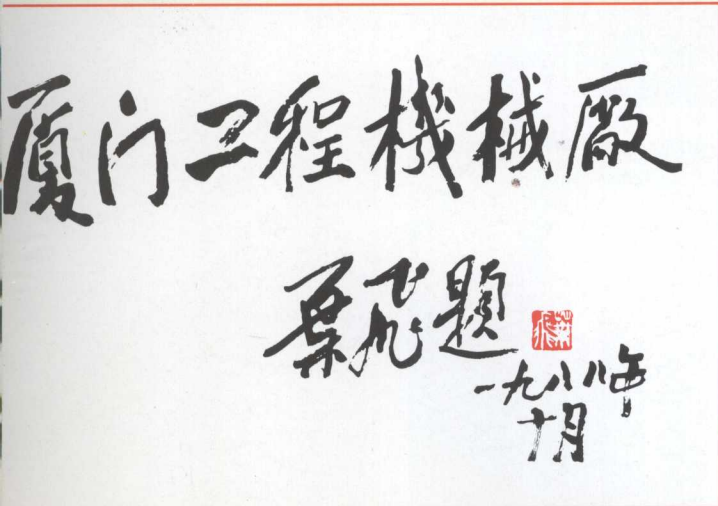 厦门工程機械廠
葉飛題
葉飛
一九八八年
十月